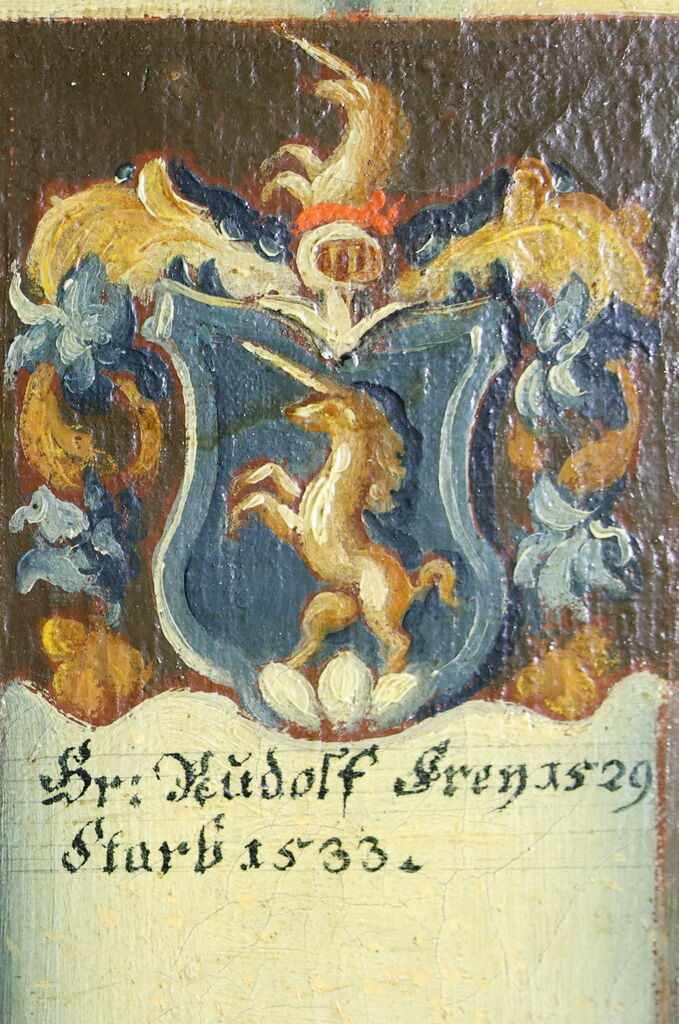 Hr: Rudolf Frey 1529
Starb 1533.